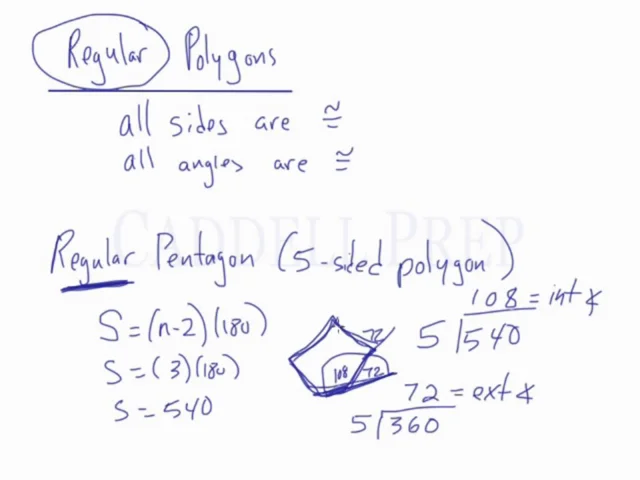 Regular Polygons
all sides are ≅
all angles are ≅
CADDELL PREP
Regular Pentagon (5-sided polygon)
S = (n-2)(180)
S = (3)(180)
S = 540
72
108 72
108 = int ∡
5 540
72 = ext ∡
5 360